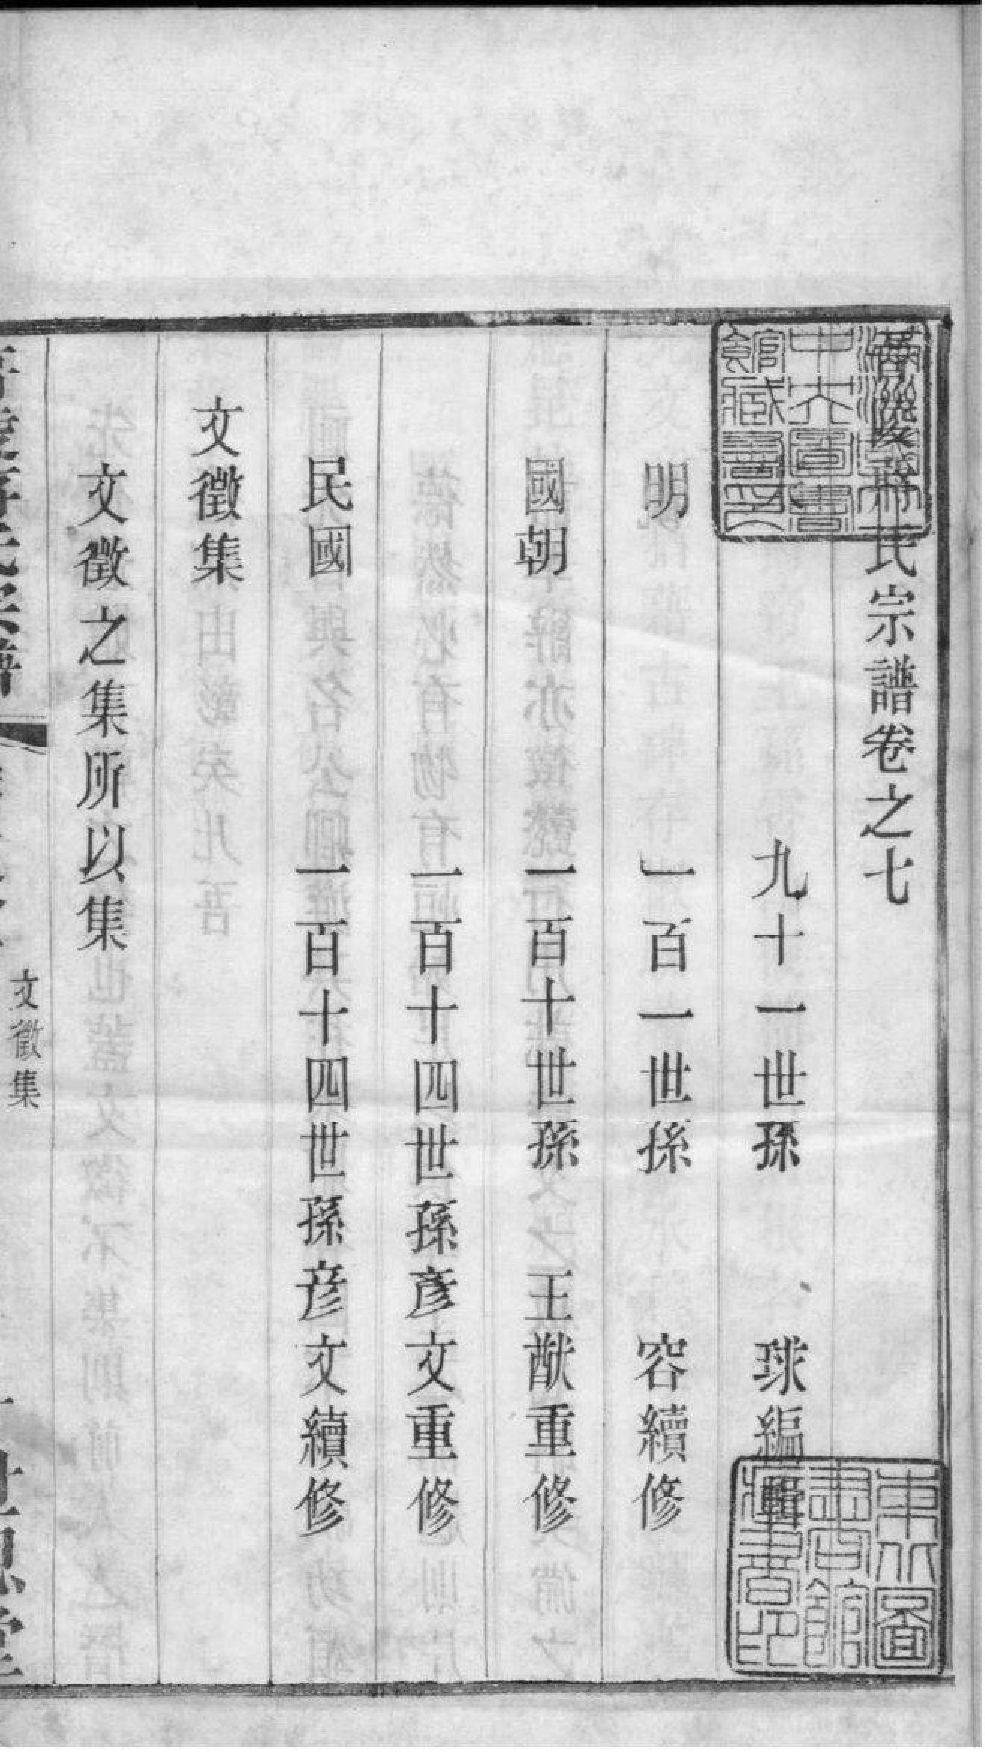 晉陵蔣氏宗譜卷之七
九十一世孫 球編輯
明 一百一世孫 容續修
國朝 一百十世孫 王猷重修
一百十四世孫彥文重修
民國 一百十四世孫彥文續修
文徵集
文徵之集所以集
文徵集
世恩堂
東北圖書館藏書印